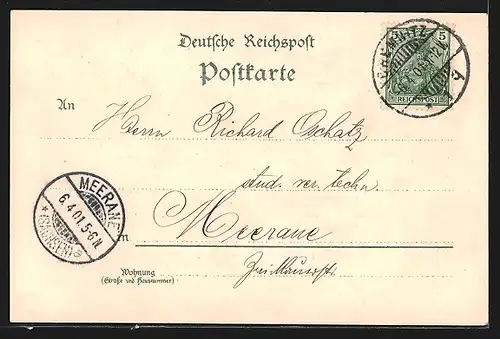 Deutsche Reichspost
Postkarte
CHEMNITZ
5
REICHSPOST
An
Herrn Richard Oschatz
stud. rer. techn.
MEERANE
6.4.01.5-6N
*(SACHSEN)
in
Meerane
Wohnung
(Straße und Hausnummer)